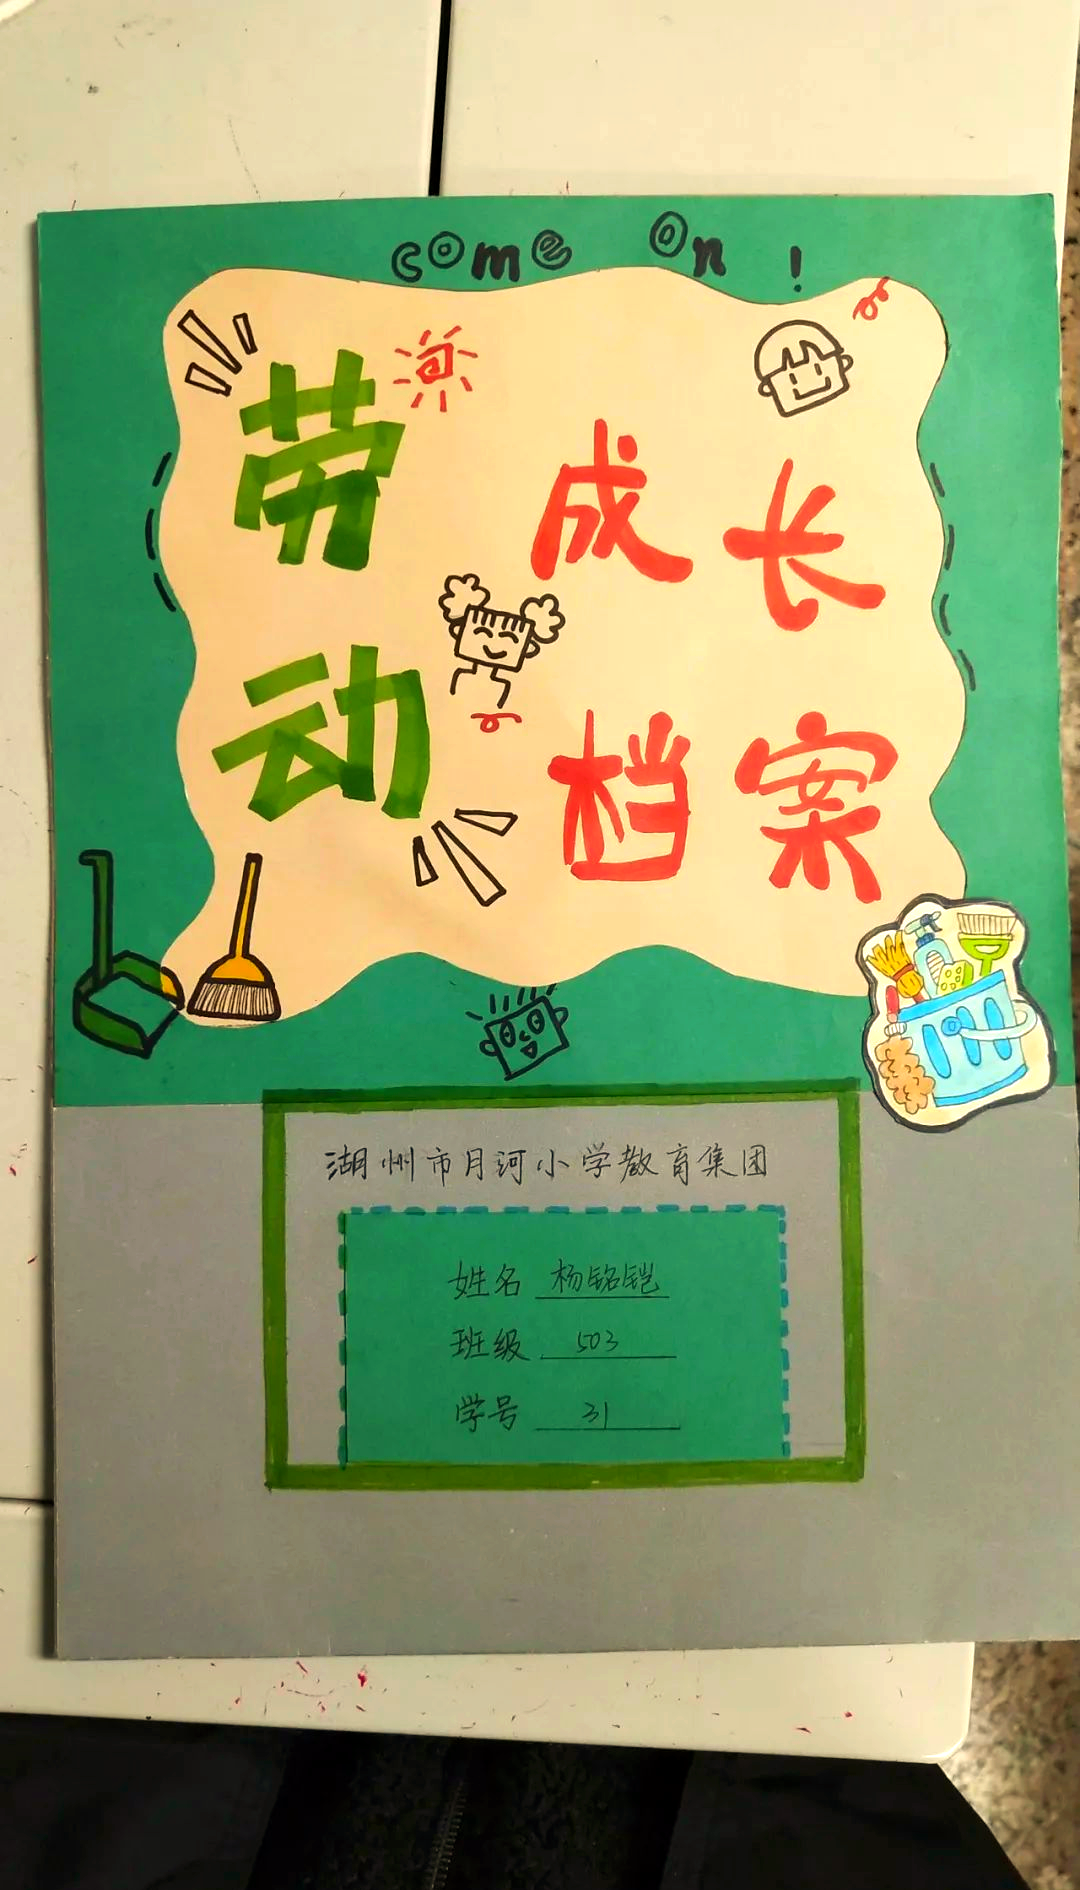 come on !
劳动
成长
档案
湖州市月河小学教育集团
姓名 杨铭铠
班级 503
学号 31